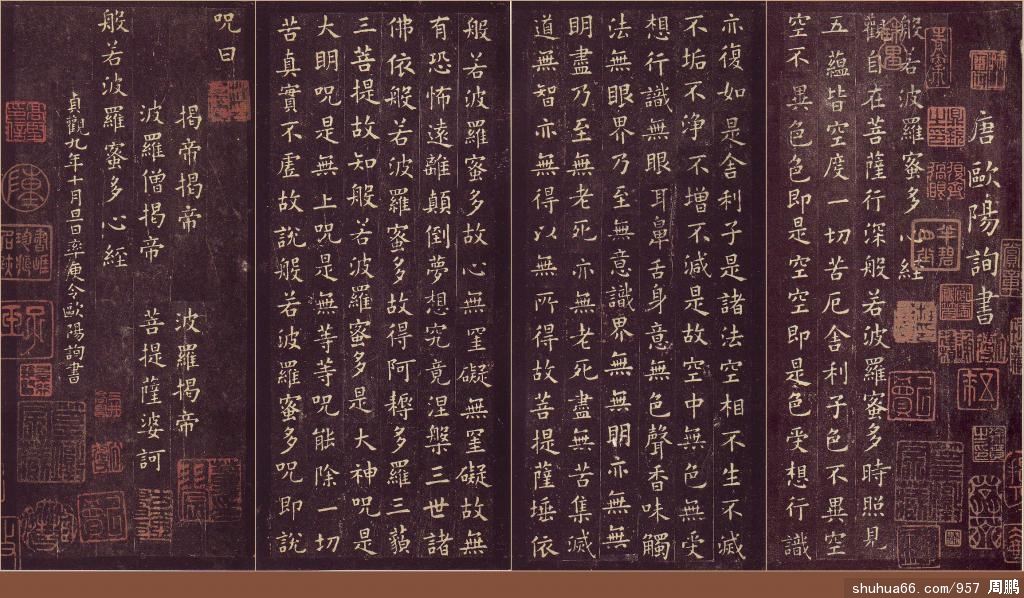 唐歐陽詢書
般若波羅蜜多心經
觀自在菩薩行深般若波羅蜜多時照見
五蘊皆空度一切苦厄舍利子色不異空
空不異色色即是空空即是色受想行識
亦復如是舍利子是諸法空相不生不滅
不垢不净不增不減是故空中無色無受
想行識無眼耳鼻舌身意無色聲香味觸
法無眼界乃至無意識界無無明亦無無
明盡乃至無老死亦無老死盡無苦集滅
道無智亦無得以無所得故菩提薩埵依
般若波羅蜜多故心無罣礙無罣礙故無
有恐怖遠離顛倒夢想究竟涅槃三世諸
佛依般若波羅蜜多故得阿耨多羅三藐
三菩提故知般若波羅蜜多是大神咒是
大明咒是無上咒是無等等咒能除一切
苦真實不虛故說般若波羅蜜多咒即說
咒曰
揭帝揭帝 波羅揭帝
波羅僧揭帝 菩提薩婆訶
般若波羅蜜多心經
貞觀九年十月旦日率更令歐陽詢書
shuhua66.com/957 周鹏